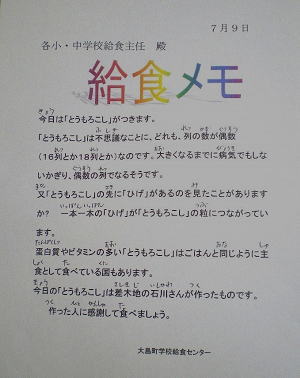 7月9日
各小・中学校給食主任 殿
給食メモ
今日は「とうもろこし」がつきます。
「とうもろこし」は不思議なことに、どれも、列の数が偶数
(16列とか18列とか)なのです。大きくなるまでに病気でもしな
いかぎり、偶数の列でなるそうです。
又「とうもろこし」の先に「ひげ」があるのを見たことがあります
か? 一本一本の「ひげ」が「とうもろこし」の粒につながってい
ます。
蛋白質やビタミンの多い「とうもろこし」はごはんと同じように主
食として食べている国もあります。
今日の「とうもろこし」は差木地の石川さんが作ったものです。
作った人に感謝して食べましょう。
大島町学校給食センター